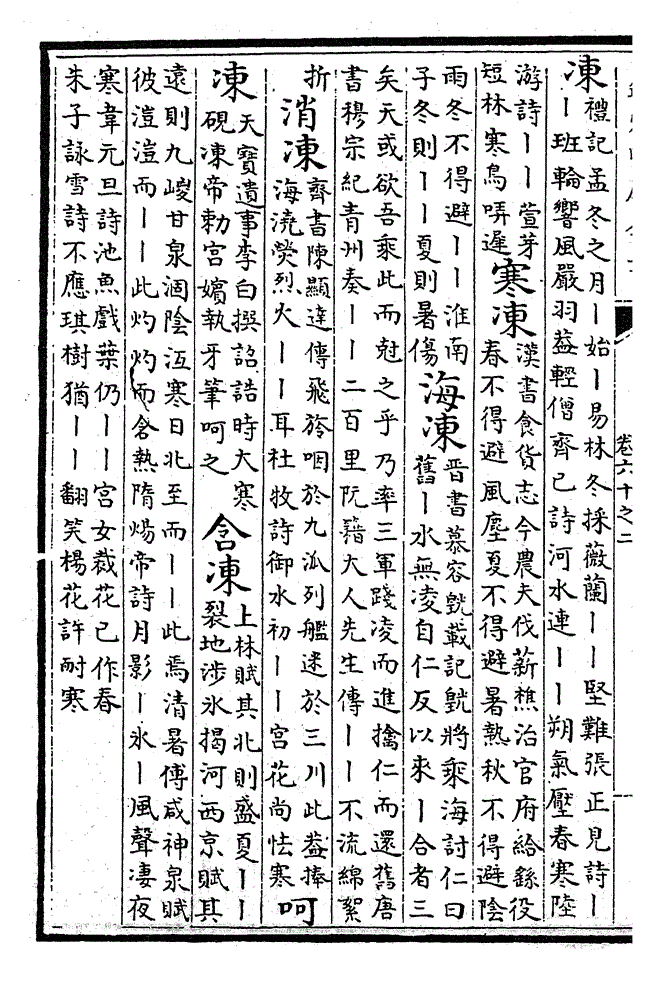 卷六十之二
凍禮記孟冬之月丨始丨易林冬採薇蘭丨丨堅難張正見詩丨
丨班輪響風嚴羽葢輕僧齊已詩河水連丨丨朔氣壓春寒陸
游詩丨丨萱芽
短林寒鳥哢遲
寒凍
漢書食貨志今農夫伐薪樵治官府給繇役
春不得避風塵夏不得避暑熱秋不得避陰
雨冬不得避丨丨淮南
子冬則丨丨夏則暑傷
海凍
晉書慕容皝載記皝將乘海討仁曰
舊丨水無凌自仁反以來丨合者三
矣天或欲吾乘此而尅之乎乃率三軍踐凌而進擒仁而還舊唐
書穆宗紀青州奏丨丨二百里阮籍大人先生傳丨丨不流綿絮
折
消凍
齊書陳顯逹傳飛旍咽於九泒列艦迷於三川此葢捧
海澆熒烈火丨丨耳杜牧詩御水初丨丨宮花尚怯寒
呵
凍
天寶遺事李白撰詔誥時大寒
硯凍帝勅宮嬪執牙筆呵之
含凍
上林賦其北則盛夏丨丨
裂地涉氷揭河西京賦其
遠則九嵕甘泉涸陰沍寒日北至而丨丨此焉清暑傅咸神泉賦
彼溰溰而丨丨此灼灼而含熱隋煬帝詩月影丨氷丨風聲凄夜
寒韋元旦詩池魚戲葉仍丨丨宮女裁花已作春
朱子詠雪詩不應琪樹猶丨丨翻笑楊花許耐寒